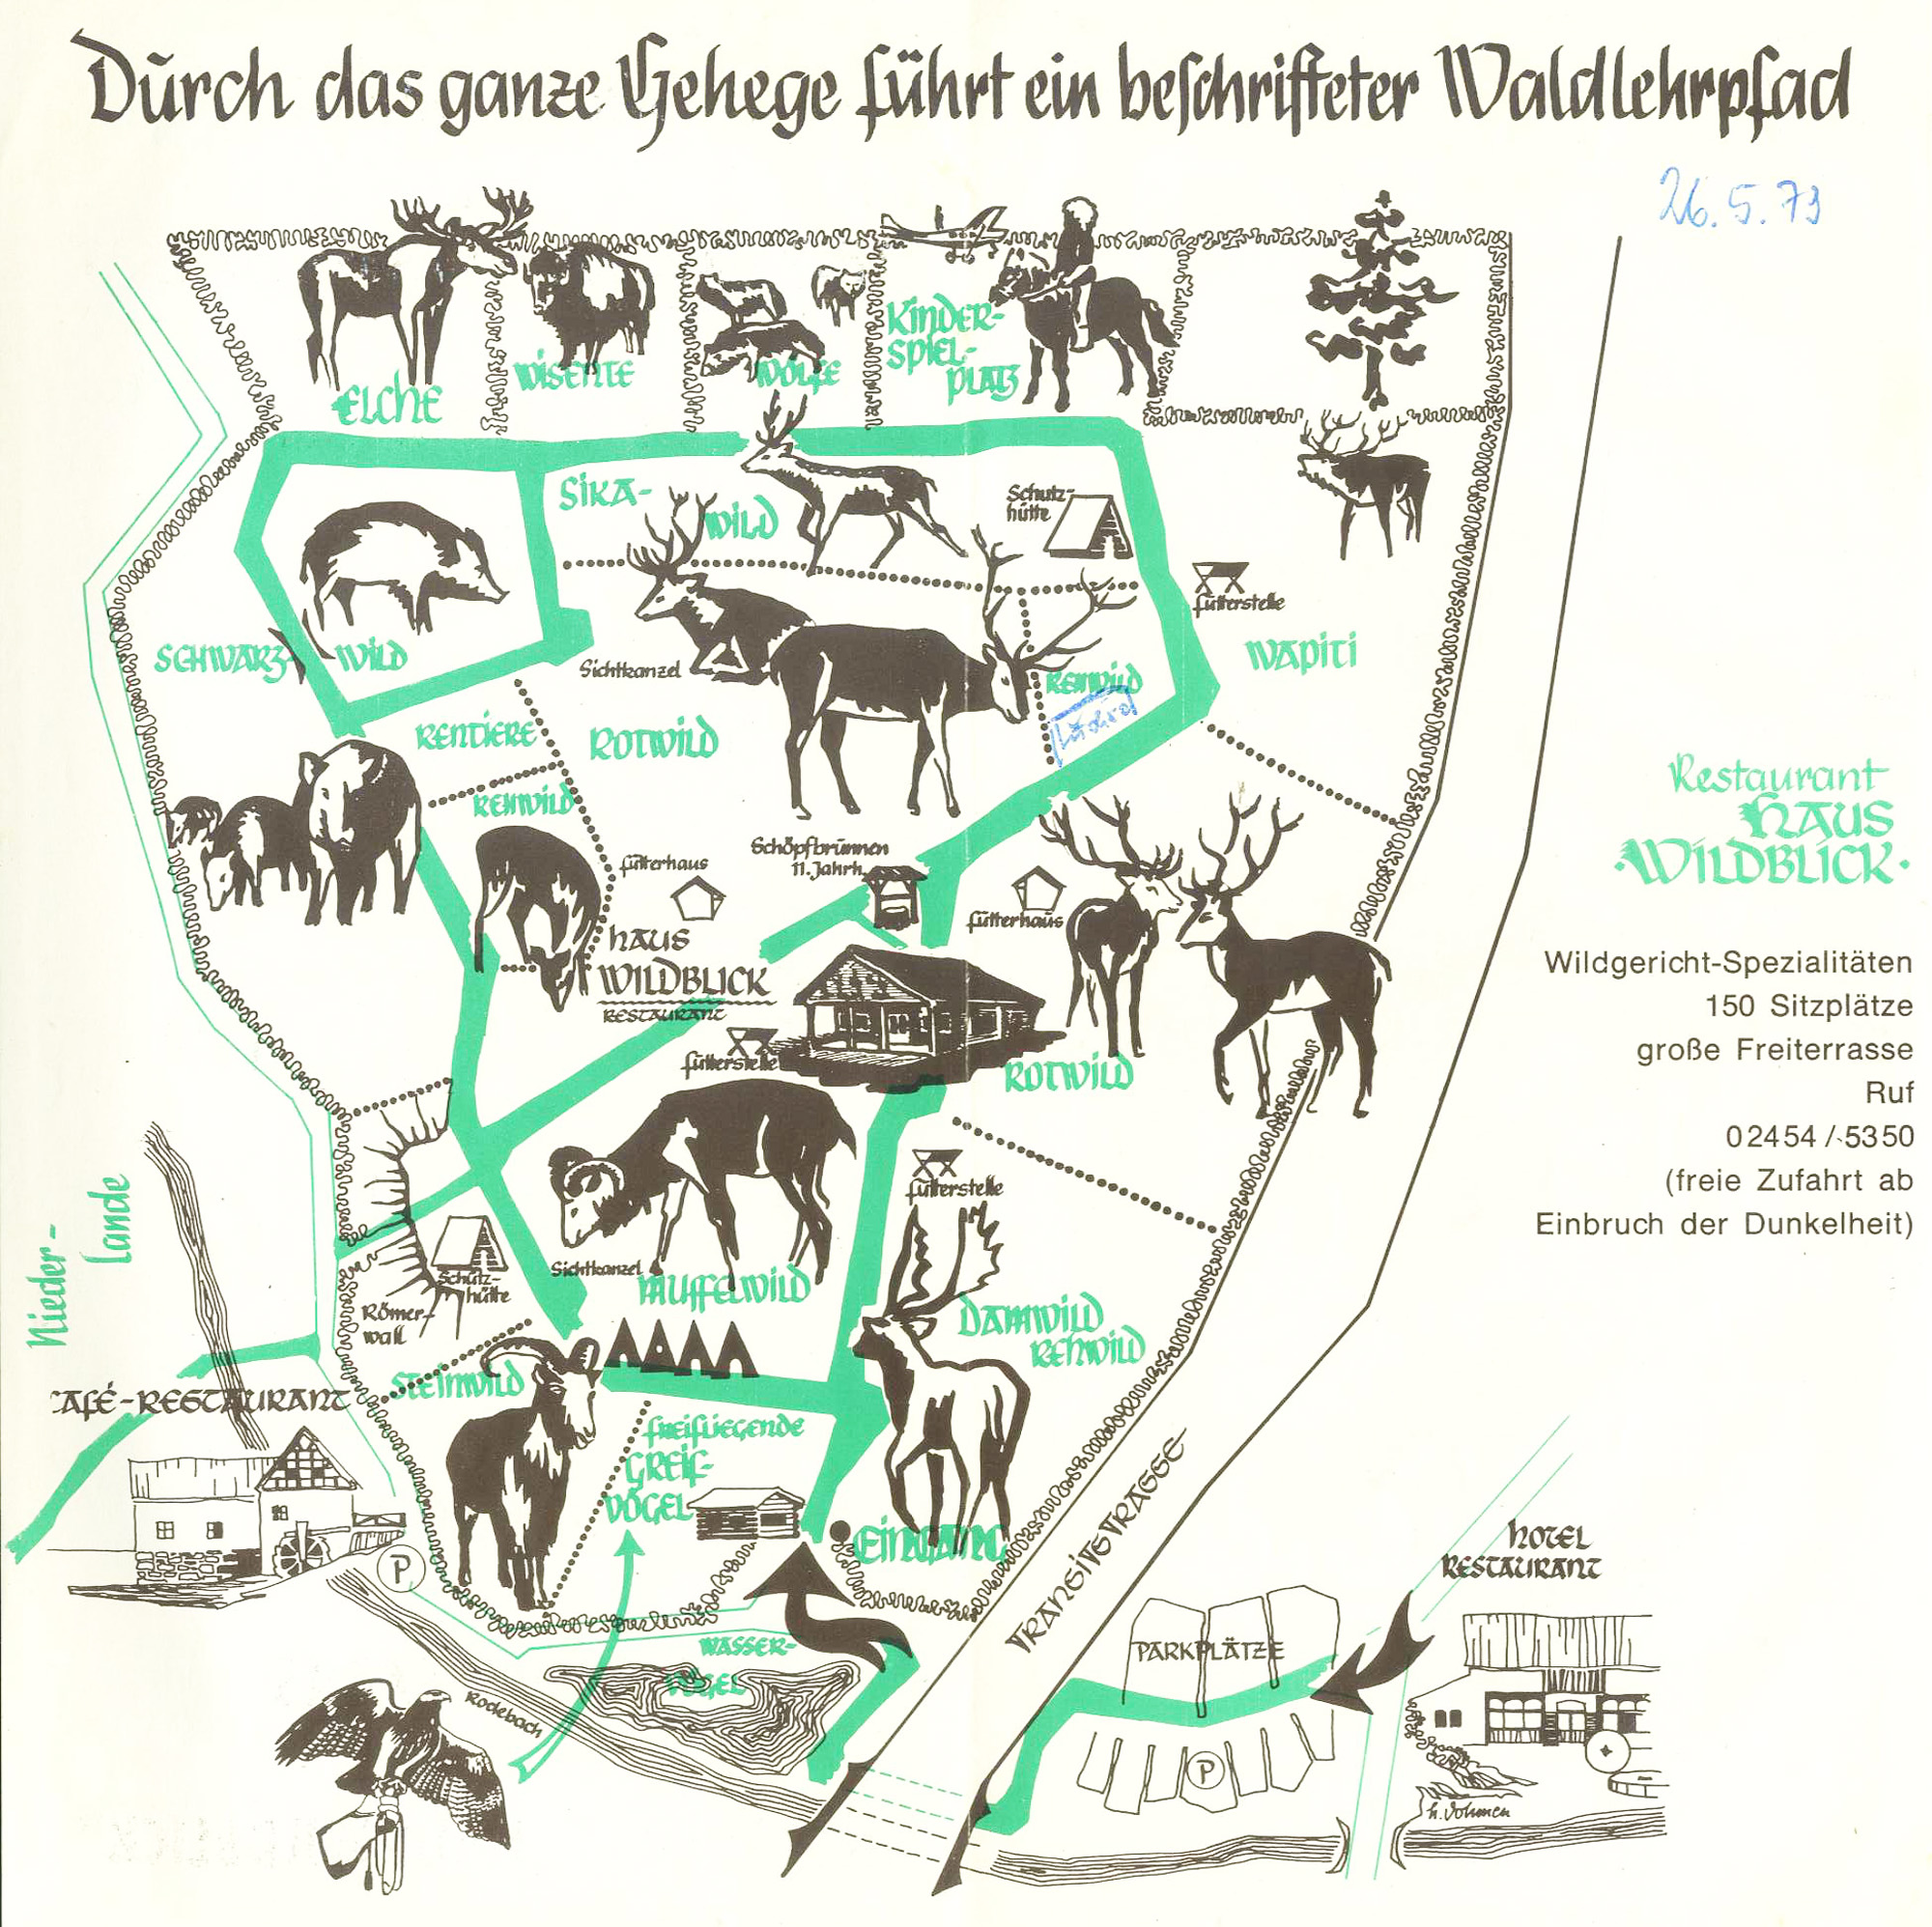 Durch das ganze Gehege führt ein beschrifteter Waldlehrpfad
26.5.73
ELCHE
WISENTE
WÖLFE
KINDER-
SPIEL-
PLATZ
SIKA-
WILD
Schutz-
hütte
Futterstelle
SCHWARZ-
WILD
Sichtkanzel
REHWILD
WAPITI
RENTIERE
ROTWILD
REHWILD
Restaurant
HAUS
·WILDBLICK·
Schöpfbrunnen
11. Jahrh.
Futterhaus
Futterhaus
HAUS
WILDBLICK
RESTAURANT
Futterstelle
ROTWILD
Wildgericht-Spezialitäten
150 Sitzplätze
große Freiterrasse
Ruf
02454/5350
(freie Zufahrt ab
Einbruch der Dunkelheit)
Futterstelle
Nieder-
lande
Schutz-
hütte
Sichtkanzel
MUFFELWILD
Römer-
wall
DAMWILD
REHWILD
STEINWILD
CAFÉ-RESTAURANT
FREIFLIEGENDE
GREIF-
VÖGEL
EINGANG
P
TRANSITSTRASSE
HOTEL
RESTAURANT
WASSER-
VÖGEL
PARKPLÄTZE
Rodebach
P
h. Vohmen